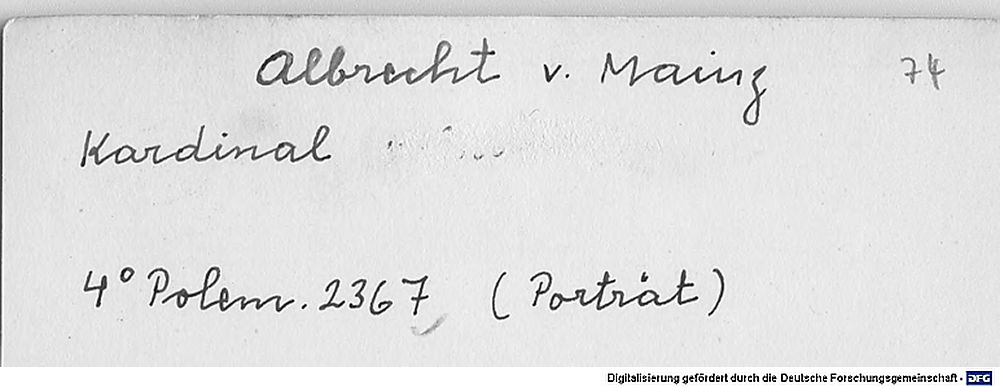 Albrecht v. Mainz 74
Kardinal
4° Polem. 2367 (Porträt)
Digitalisierung gefördert durch die Deutsche Forschungsgemeinschaft - DFG